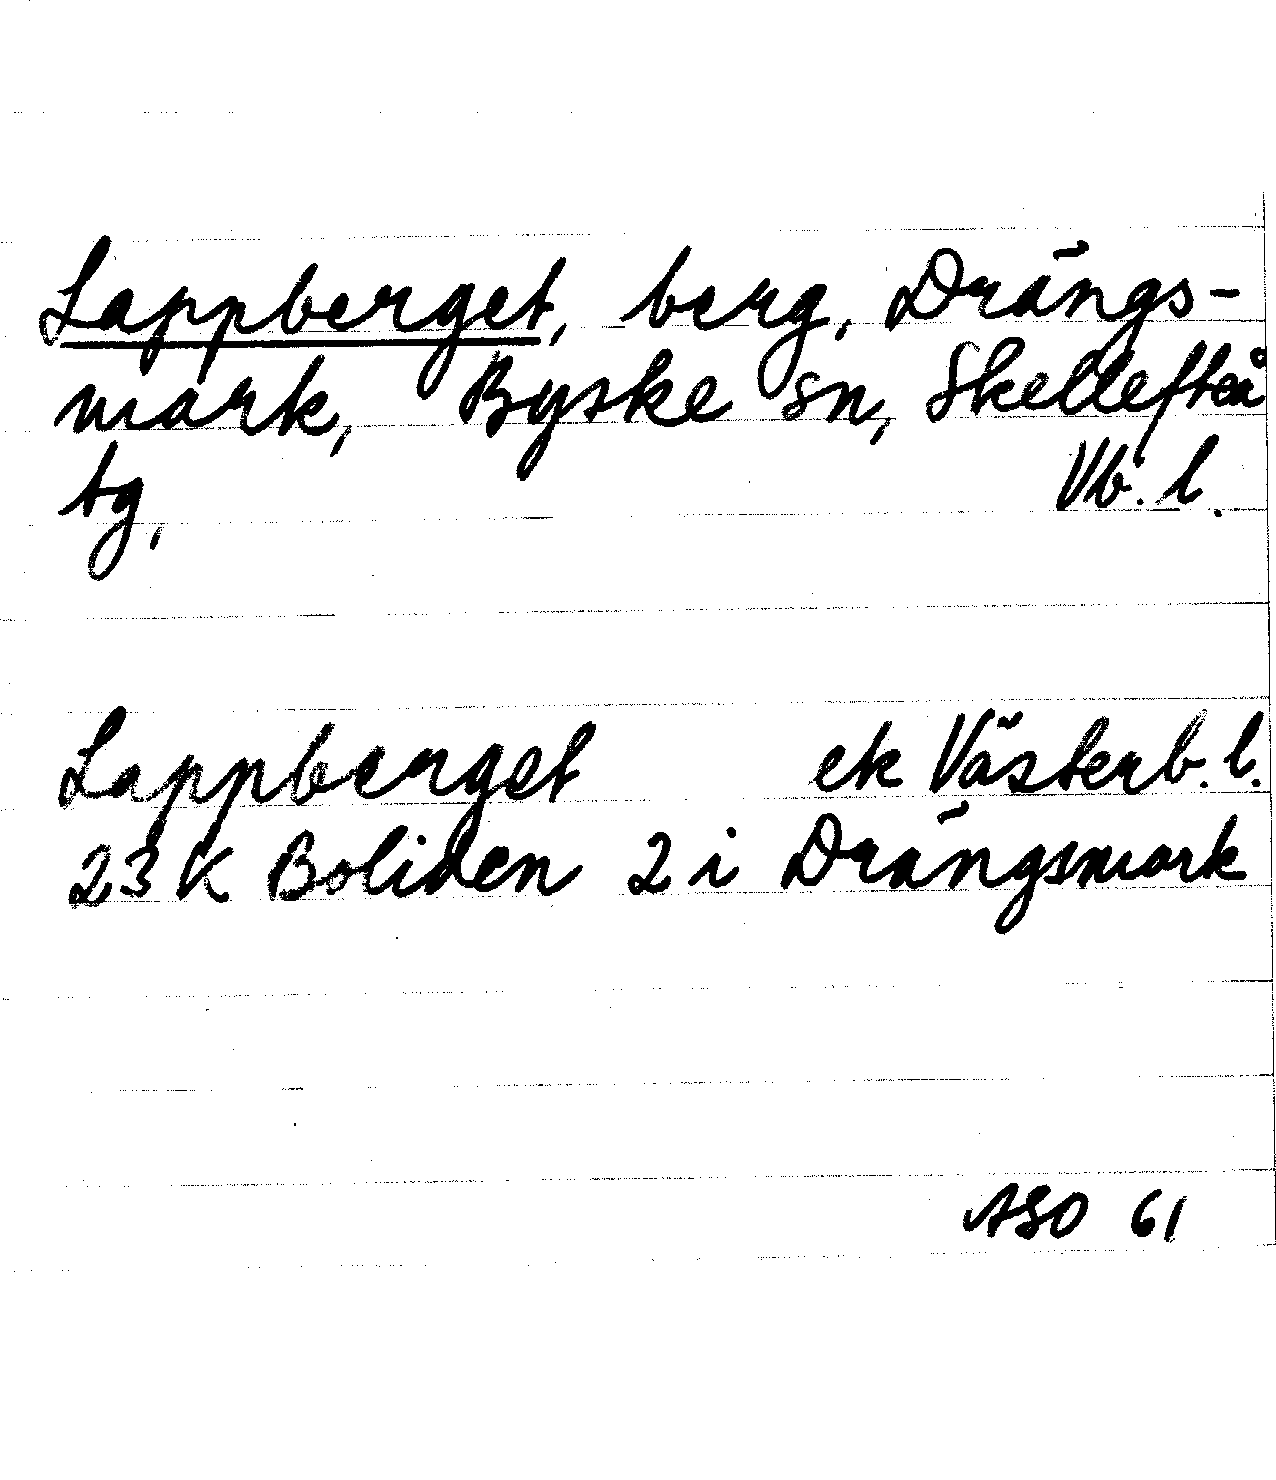 Lappberget, berg, Drängs-
mark, Byske sn, Skellefteå
tg, Vb. l.
Lappberget ek Västerb. l.
23 K Boliden 2 i Drängsmark
ASO 61